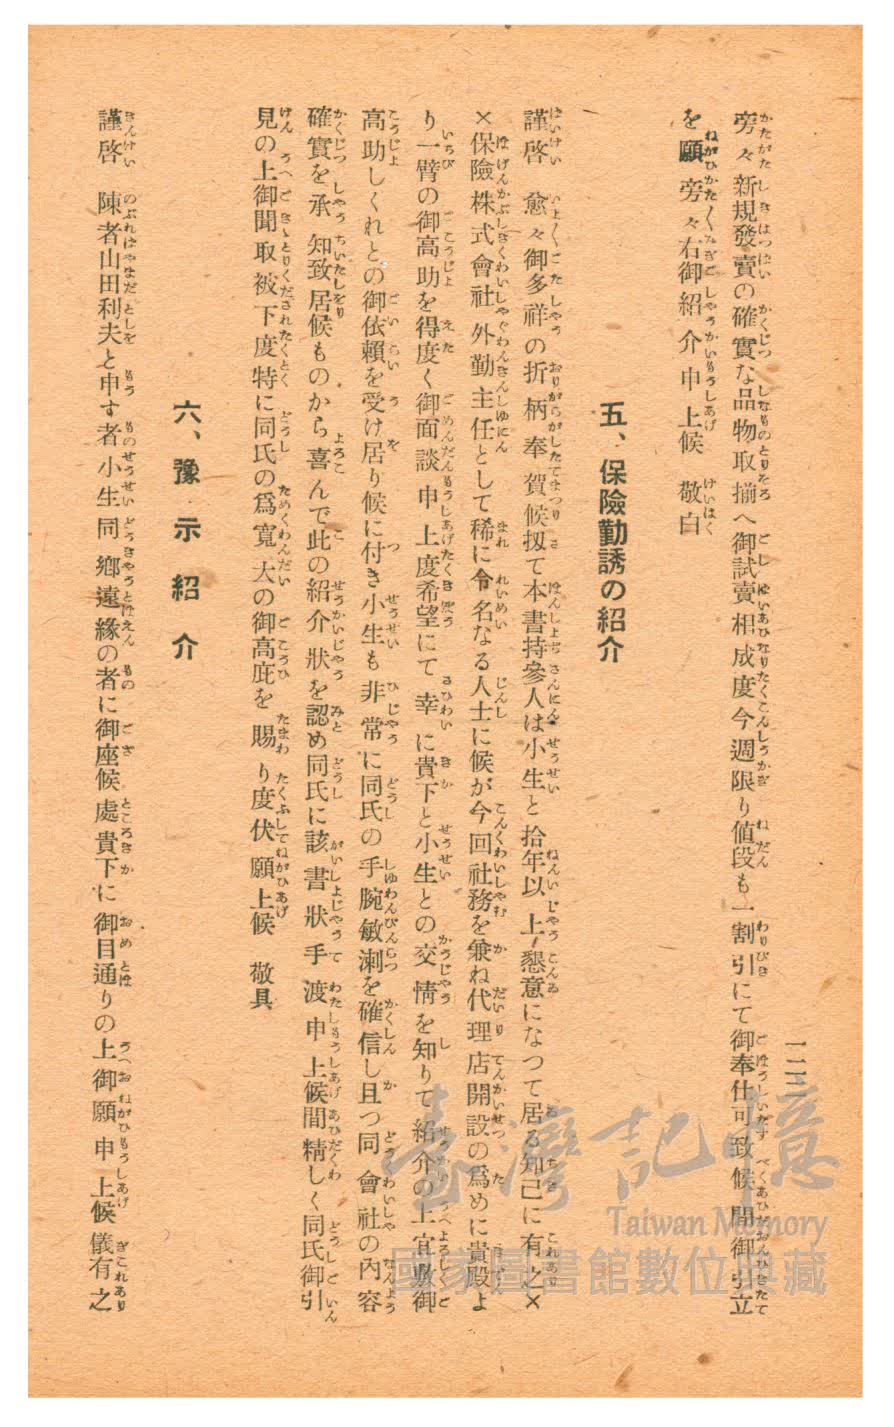 一二二
旁々新規發賣の確實な品物取揃へ御試賣相成度今週限り値段も一割引にて御奉仕可致候間御引立
を願旁々右御紹介申上候　敬白
五、保險勸誘の紹介
謹啓　愈々御多祥の折柄奉賀候扨て本書持參人は小生と拾年以上懇意になつて居る知己に有之×
×保險株式會社外勤主任として稀に令名なる人士に候が今回社務を兼ね代理店開設の爲めに貴殿よ
り一臂の御高助を得度く御面談申上度希望にて幸に貴下と小生との交情を知りて紹介の上宜敷御
高助しくれとの御依賴を受け居り候に付き小生も非常に同氏の手腕敏溂を確信し且つ同會社の內容
確實を承知致居候ものから喜んで此の紹介狀を認め同氏に該書狀手渡申上候間精しく同氏御引
見の上御聞取被下度特に同氏の爲寬大の御高庇を賜り度伏願上候　敬具
六、豫示紹介
謹啓　陳者山田利夫と申す者小生同鄕遠緣の者に御座候處貴下に御目通りの上御願申上候儀有之
臺灣記憶
Taiwan Memory
國家圖書館數位典藏